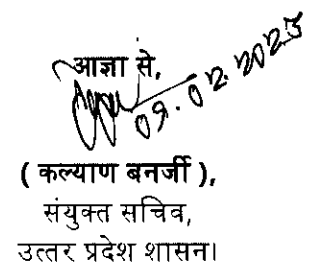 आज्ञा से,
09.02.2023
( कल्याण बनर्जी ),
संयुक्त सचिव,
उत्तर प्रदेश शासन।